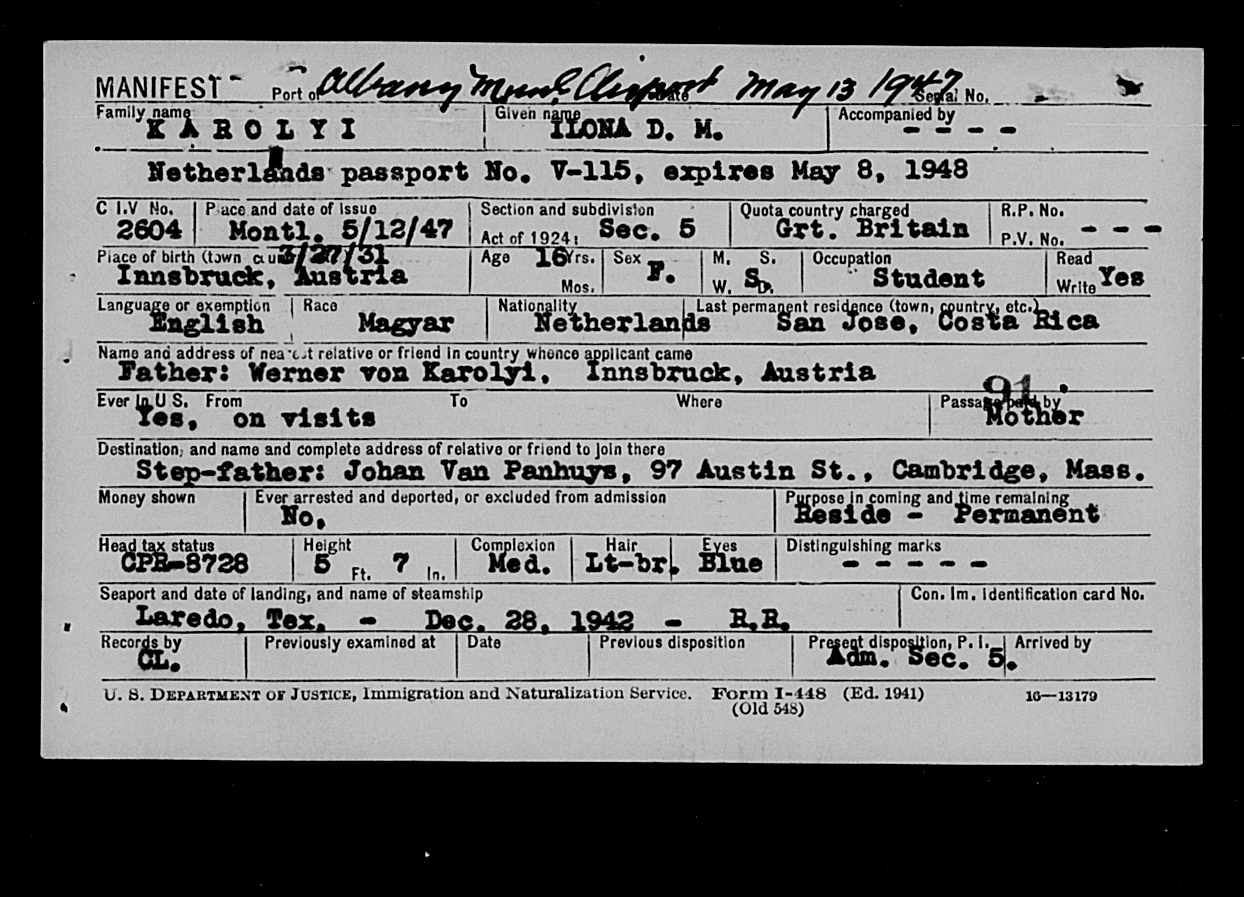 MANIFEST Port of Albany Mun'l Airport Date May 13 1947 Serial No.
Family name KAROLYI Given name ILONA D. M. Accompanied by - - - -
Netherlands passport No. V-115, expires May 8, 1948
C I.V No. Place and date of issue Section and subdivision Quota country charged R.P. No.
2604 Montl. 5/12/47 Act of 1924: Sec. 5 Grt. Britain P.V. No. - - -
Place of birth (town 3/27/31 Age 16 Yrs. Sex M. S. Occupation Read
Innsbruck, Austria Mos. F. W. S D. Student Write Yes
Language or exemption Race Nationality Last permanent residence (town, country, etc.)
English Magyar Netherlands San Jose, Costa Rica
Name and address of nearest relative or friend in country whence applicant came
Father: Werner von Karolyi, Innsbruck, Austria
91
Ever in U S. From To Where Passage paid by
Yes, on visits Mother
Destination, and name and complete address of relative or friend to join there
Step-father: Johan Van Panhuys, 97 Austin St., Cambridge, Mass.
Money shown Ever arrested and deported, or excluded from admission Purpose in coming and time remaining
No, Reside - Permanent
Head tax status Height Complexion Hair Eyes Distinguishing marks
CPR-8728 5 Ft. 7 In. Med. Lt-br. Blue - - - - -
Seaport and date of landing, and name of steamship Con. Im. Identification card No.
Laredo, Tex. - Dec. 28, 1942 - R.R.
Records by Previously examined at Date Previous disposition Present disposition, P. I. Arrived by
CL. Adm. Sec. 5.
U. S. DEPARTMENT OF JUSTICE, Immigration and Naturalization Service. Form I-448 (Ed. 1941) 16—13179
(Old 548)